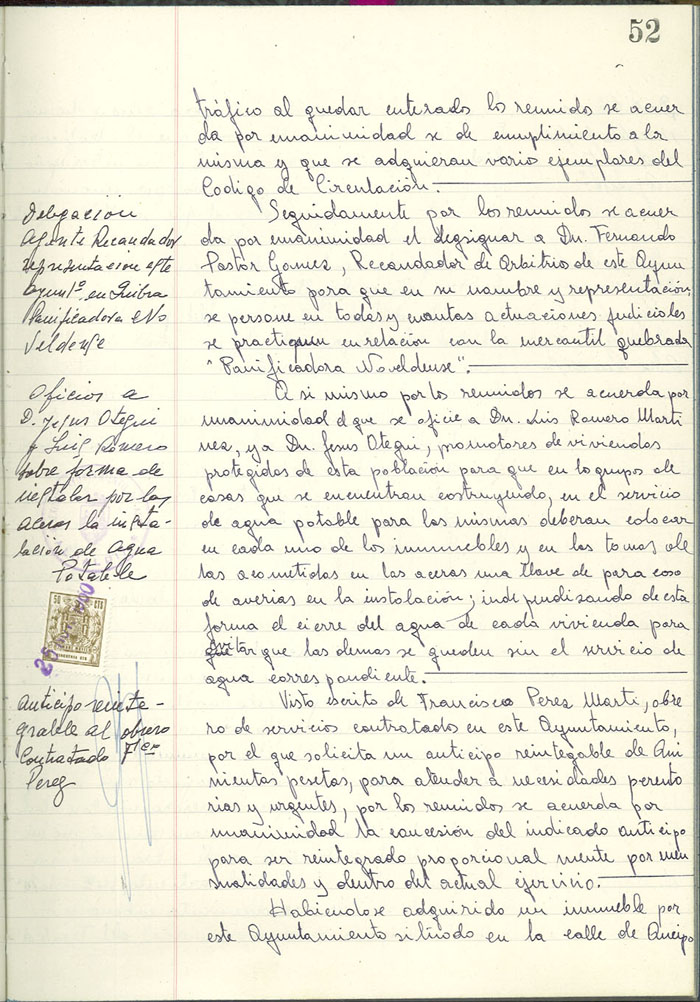 52
tráfico al quedar enterados los reunidos se acuer
da por unanimidad se de cumplimiento a la
misma y que se adquieran varios ejemplares del
Codigo de Circulación.
Delegación
Agente Recaudador
representacion este
Ayuntº. en Quibra
Panificadora No
veldense
Seguidamente por los reunidos se acuer
da por unanimidad el designar a Dn. Fernando
Pastor Gomez, Recaudador de Arbitrio de este Ayun
tamiento para que en su nombre y representación,
se persone en todas y cuantas actuaciones judiciales
se practiquen en relación con la mercantil quebrada
"Panificadora Noveldense".
Oficios a
D. Jesus Otegui
y Luis Romero
sobre forma de
instalar por las
aceras la insta-
lación de Agua
Potable
A si mismo por los reunidos se acuerda por
unanimidad el que se oficie a Dn. Luis Romero Marti
nez, y a Dn. Jesus Otegui, promotores de viviendas
protegidas de esta población para que en lo grupos de
casas que se encuentran costruyendo, en el servicio
de agua potable para las mismas deberan colocar
en cada uno de los inmuebles y en las tomas de
las acometidas en las aceras una llave de para caso
de averias en la instalación; indipendizando de esta
forma el cierre del agua de cada vivienda para
evitar que las demas se queden sin el servicio de
agua correspondiente.
50 CTS
Anticipo reinte-
grable al obrero
contratado Fco
Perez
Visto escrito de Francisco Perez Marti, obre
ro de servicios contratados en este Ayuntamiento,
por el que solicita un anticipo reintegable de Qui
nientas pesetas, para atender a necesidades perento
rias y urgentes, por los reunidos se acuerda por
unanimidad la concesión del indicado anticipo
para ser reintegrado proporcional mente por men
sualidades y dentro del actual ejercicio.
Habiendose adquirido un inmueble por
este Ayuntamiento situado en la calle de Queipo